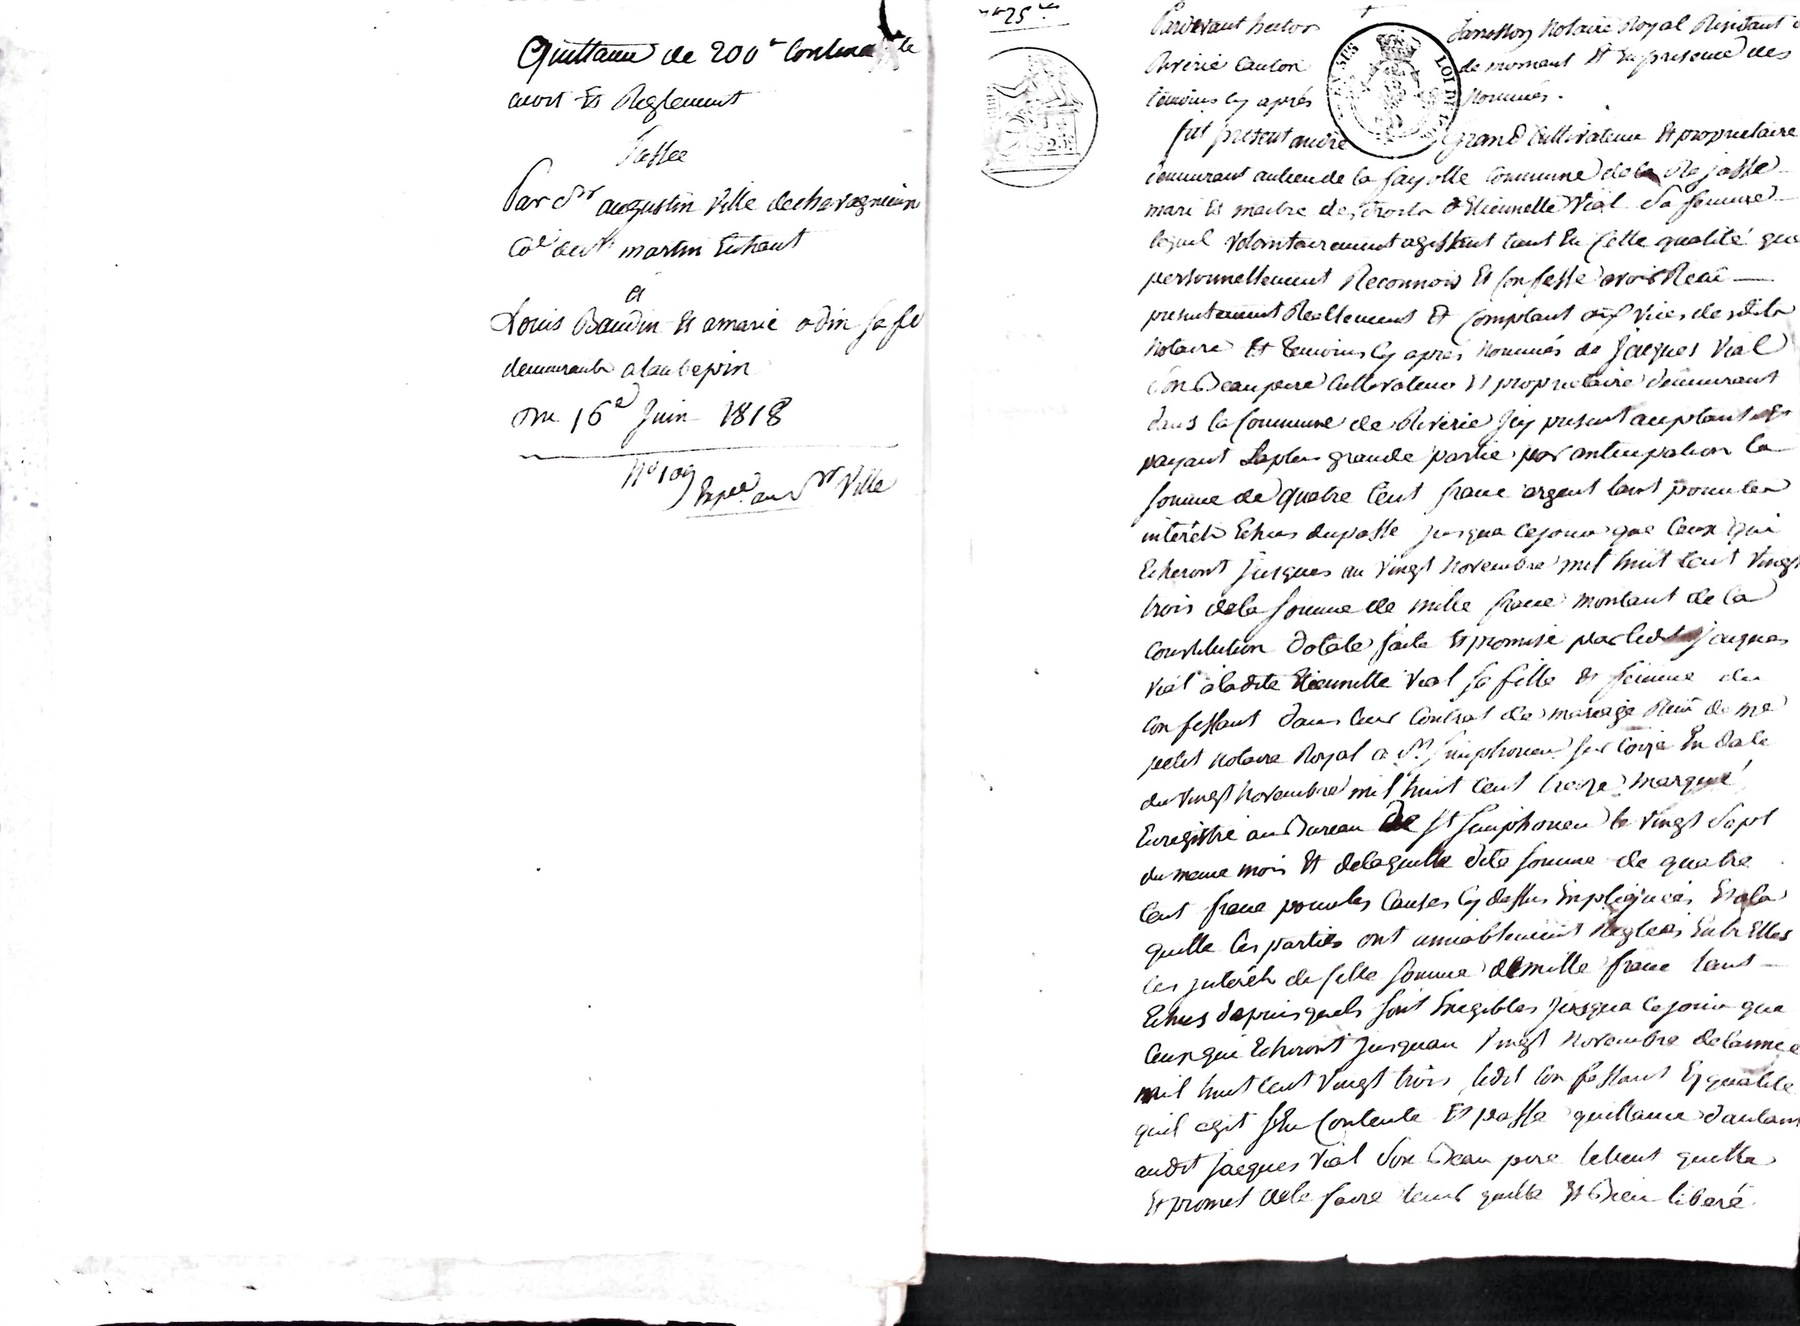 Quittance de 200 f contena
avoit Et Reglement
Passee
Par Sr augustin Ville dechavagnieux
Martin Echaut
et
Louis Baudin Et amarie odin sa fe
demeurants alaubepin
Du 16e Juin 1818
No 109
Expée au Sr Ville
25 ces
Pardevant hector Janesson Notaire Royal Residant a
Riverie canton de mornant Et En presence des
temoins cy aprés Nommés.
fut present andré Grand Cultivateur Et proprietaire
demeurant aulieu de la fayolle Commune de la Rajasse
mari Et maitre des droits d'Etiennette Vial Sa femme
lequel Volontairement agissant tant En Cette qualité que
personnellement Reconnois Et Confesse avoir Recu
presentement Reellement Et Comptant aux Vues desdits
Notaire Et temoins cy aprés Nommés de Jacques Vial
Son Beaupere Cultivateur Et proprietaire demeurant
dans la Commune de Riverie Icy present acceptant Et
payant Laplus grande partie par anticipation la
Somme de quatre Cent franc argent tant pour les
interêts Echus dupassé jusqua cejour que Ceux qui
Echeront jusques au Vingt Novembre mil huit Cent Vingt
trois dela Somme de mille franc montant de la
Constitution dotale faite Et promise par ledit Jacques
Vial a ladite Etiennette Vial sa fille Et femme du
Confessant dans leur Contrat de mariage Recu de me
petit Notaire Royal a St Simphorien sur Coize En date
du Vingt Novembre mil huit Cent treize marqué
Enregistré au Bureau de St Simphorien le Vingt Sept
du meme mois Et delaquelle dite Somme de quatre
Cent franc pour les Causes cy dessus Expliquées Et a la
quelle les parties ont amiablement Reglées Entr'Elles
les interêts de Cette Somme de mille franc tant
Echus depuis quels sont Exigibles jusqua cejour que
Ceux qui Echeront jusquau Vingt Novembre delannee
mil huit cent Vingt trois ledit Confessant En qualité
quil agit S'En Contente Et passe quittance dautant
audit Jacques Vial Son Beau pere letient quitte
Et promet de le faire tenir quitte Et Bien liberé.